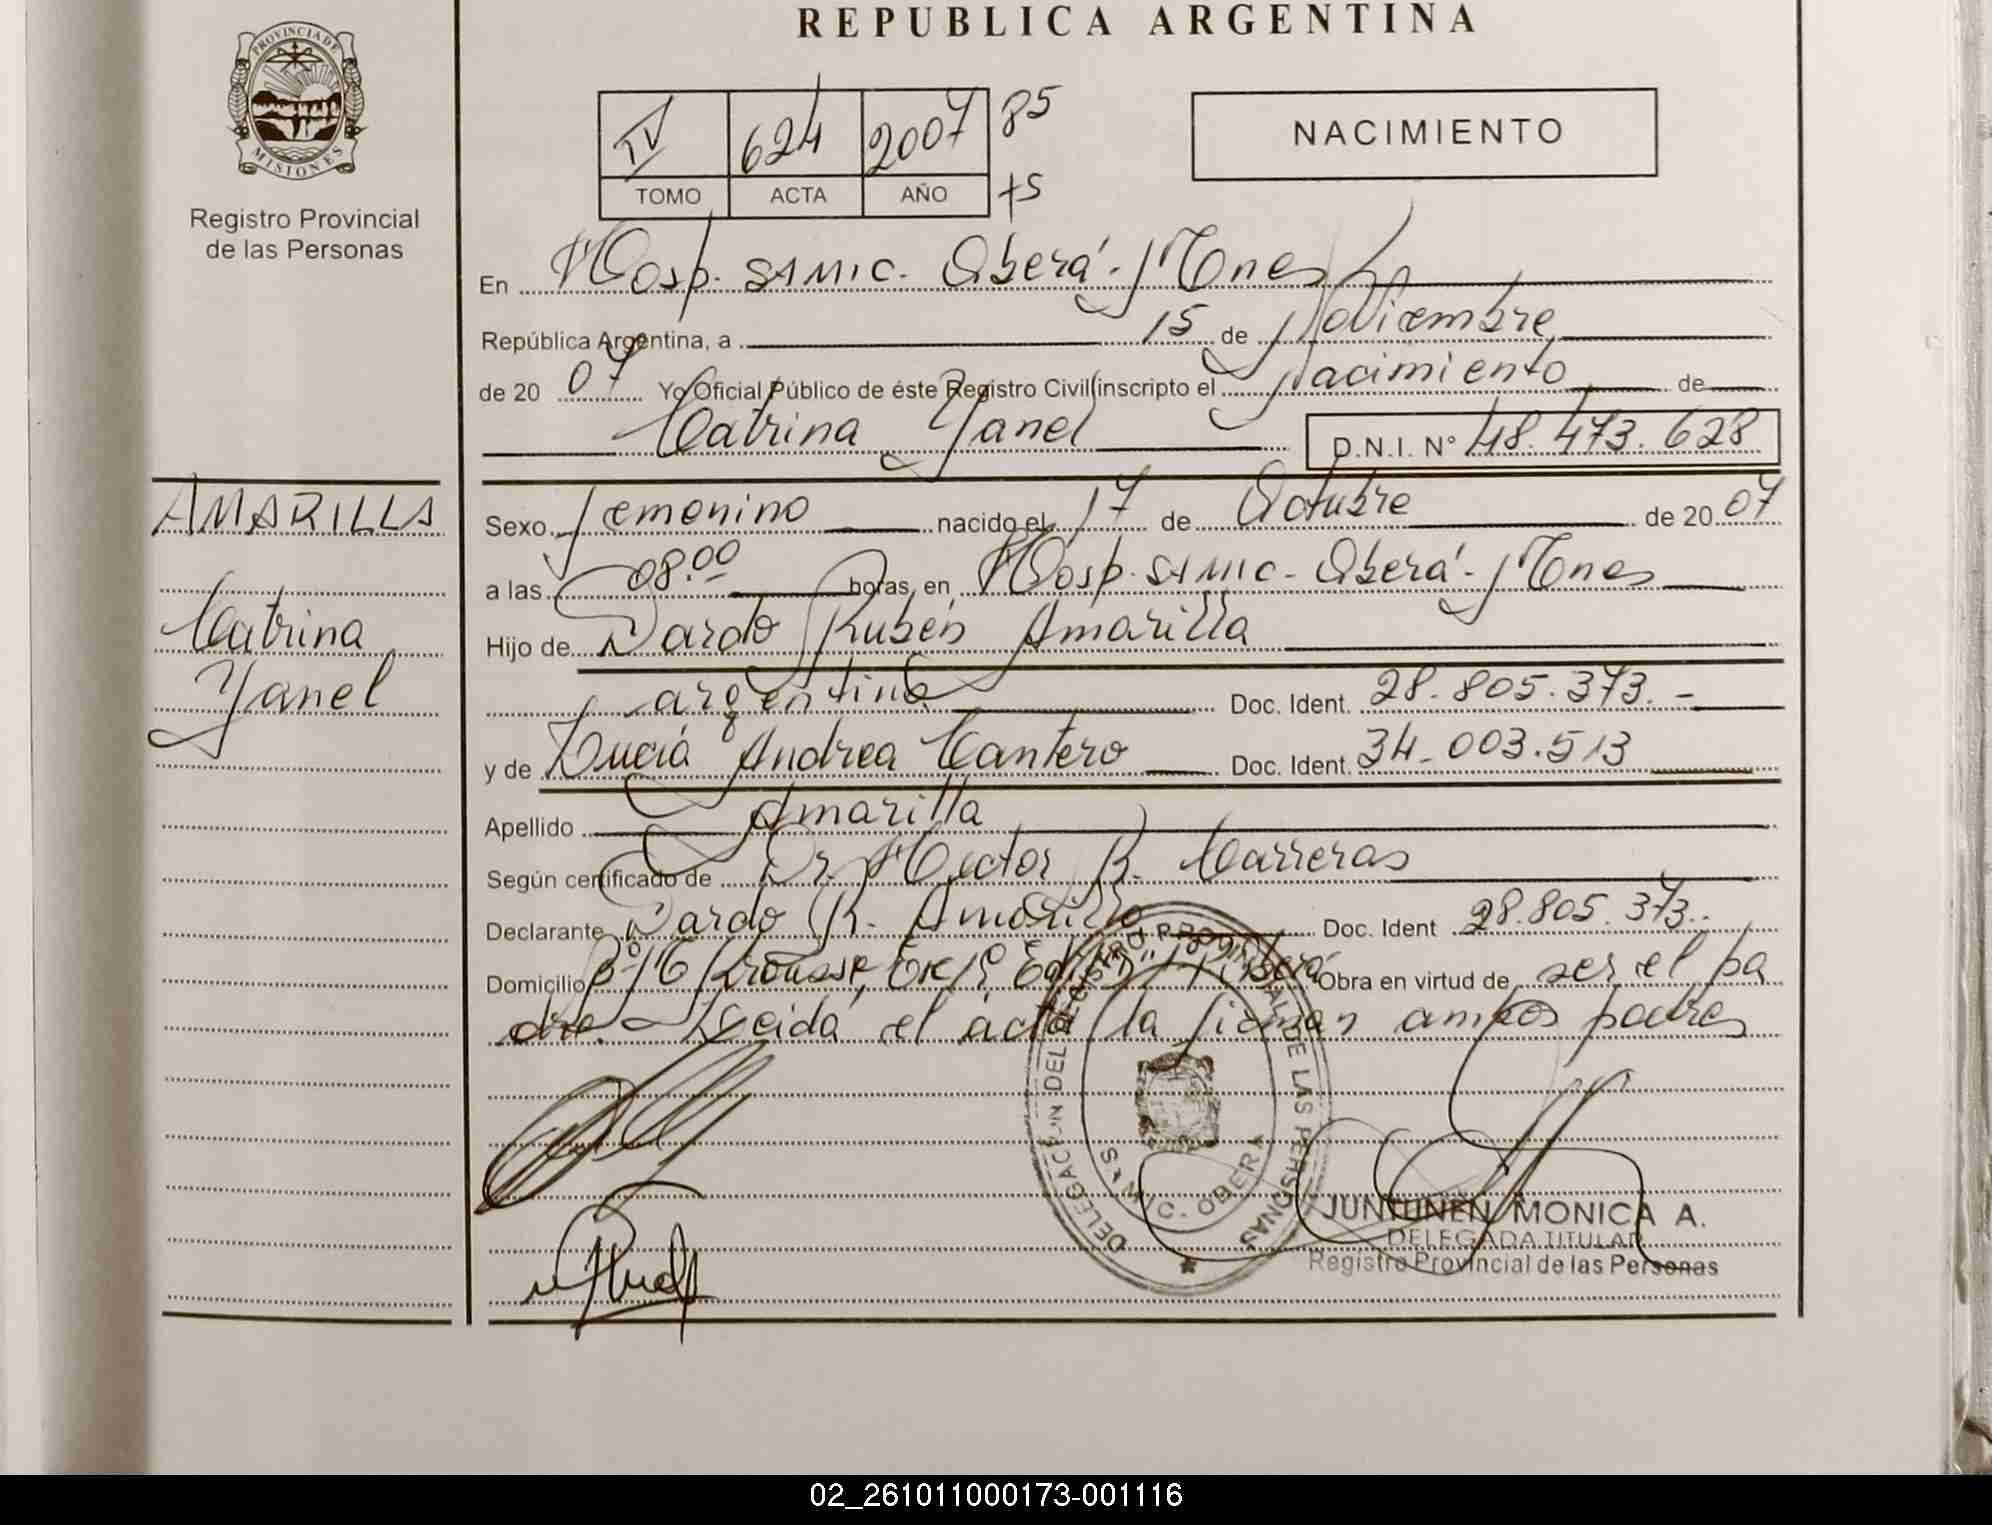 REPUBLICA ARGENTINA
PROVINCIA DE
MISIONES
Registro Provincial
de las Personas
IV 624 2007 85
TOMO ACTA AÑO
NACIMIENTO
En Hosp. SAMIC. Oberá. Mnes
República Argentina, a 15 de Noviembre
de 20 07 Yo Oficial Público de éste Registro Civil inscripto el Nacimiento de
Catrina Yanel D.N.I. N° 48.473.628
AMARILLA
Catrina
Yanel
Sexo Femenino nacido el 17 de Octubre de 20 07
a las 08.00 horas, en Hosp. SAMIC - Oberá - Mnes
Hijo de Dardo Rubén Amarilla
argentina Doc. Ident. 28.805.373.-
y de Lucia Andrea Cantero Doc. Ident. 34.003.513
Apellido Amarilla
Según certificado de Dr. Hector R. Carreras
Declarante Dardo R. Amarilla Doc. Ident 28.805.373.
Domicilio Obra en virtud de ser el pa
dre. Leida el acta la firman ambos padres
DELEGACION DEL REGISTRO PROVINCIAL DE LAS PERSONAS
SAMIC. OBERA
JUNTUNEN MONICA A.
DELEGADA TITULAR
Registro Provincial de las Personas
02_261011000173-001116